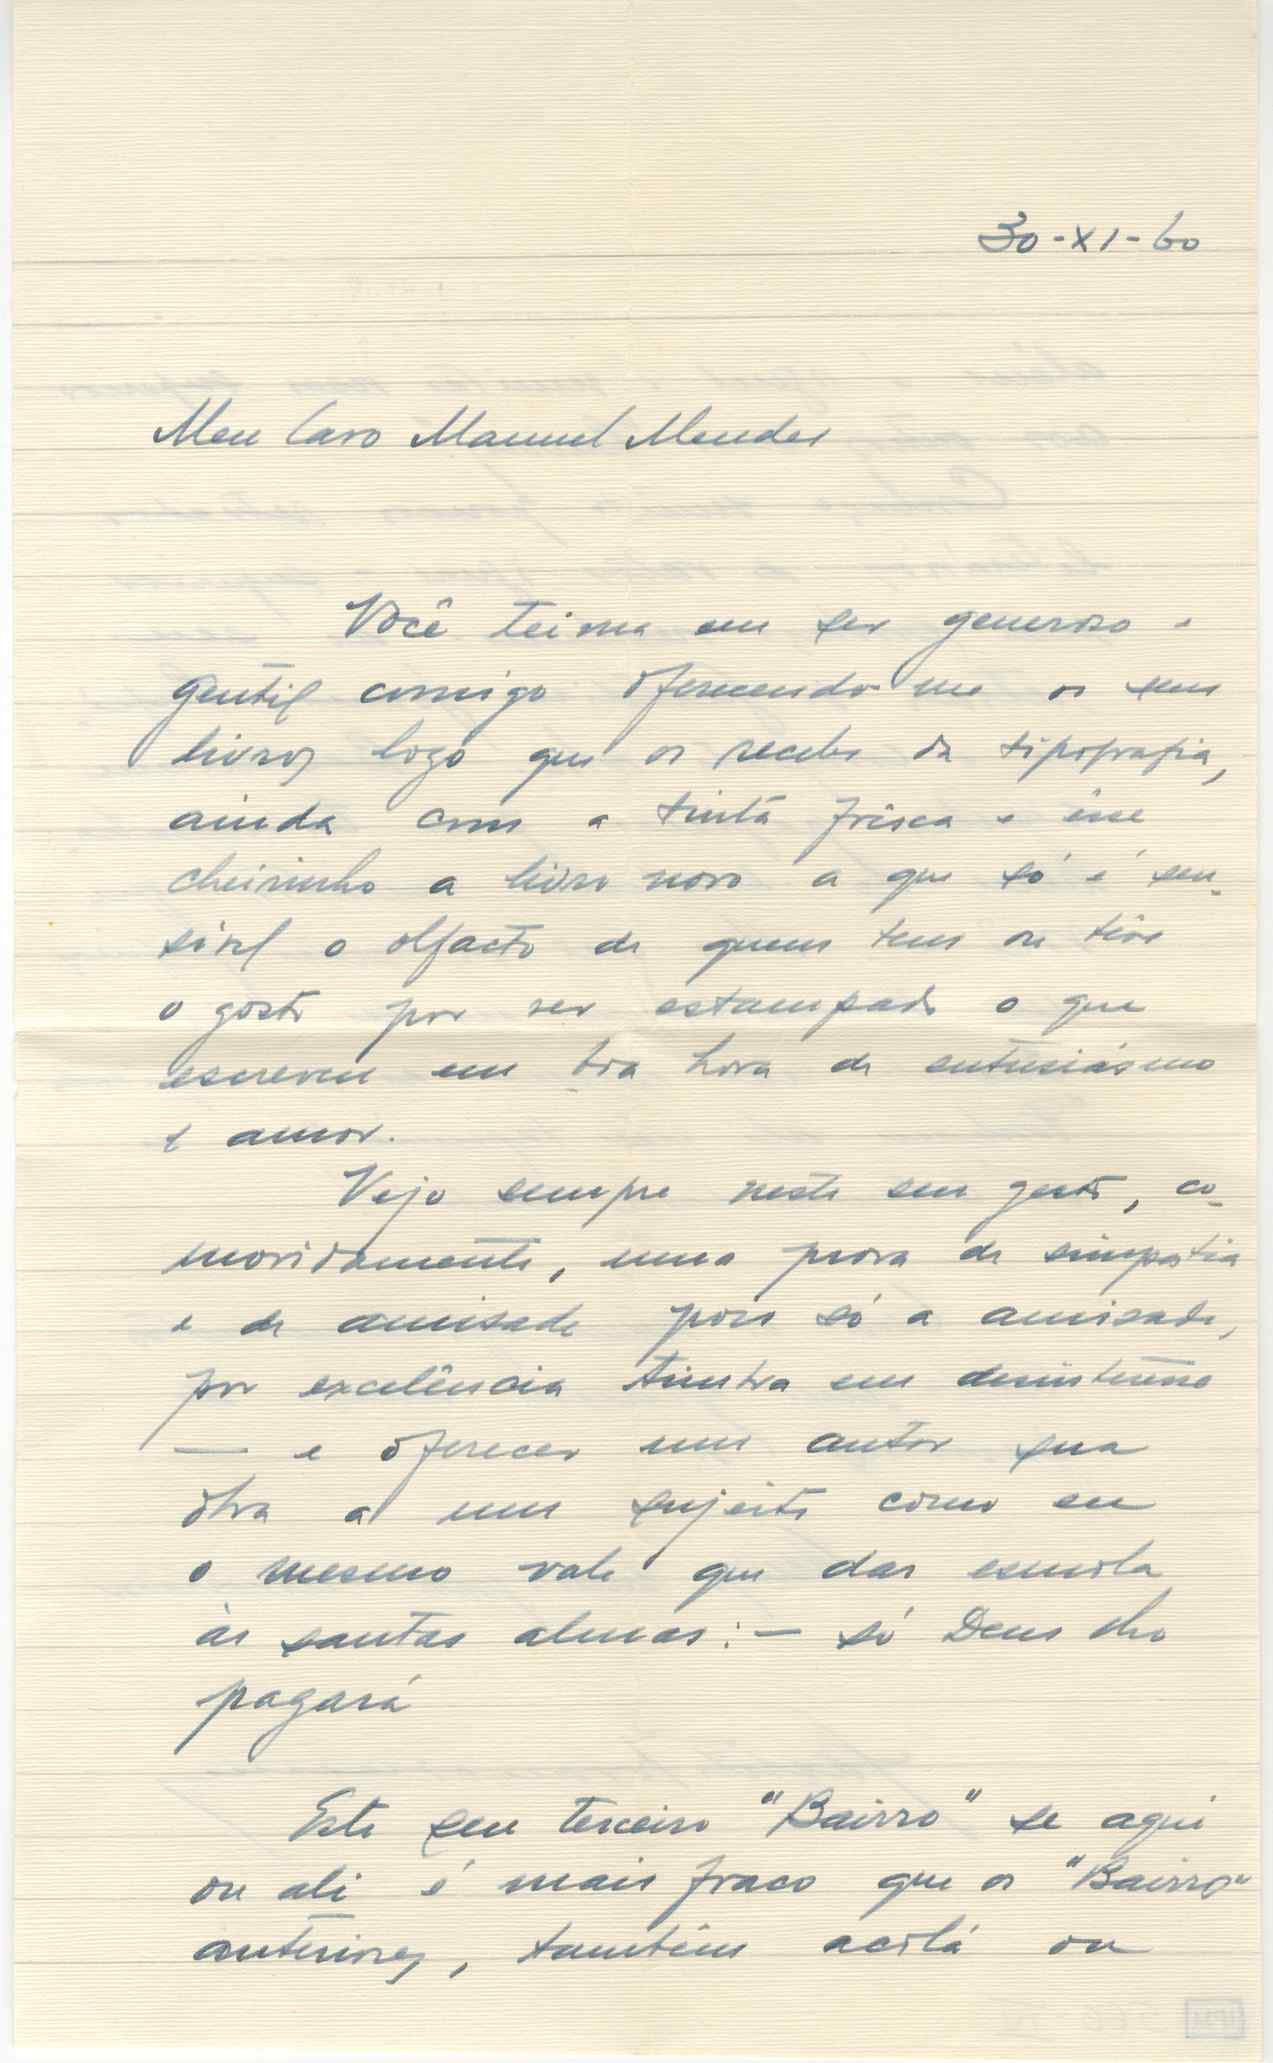 30-XI-60
Meu Caro Manuel Mendes
Você teima em ser generoso e
gentil comigo oferecendo-me os seus
livros logo que os recebe da tipografia,
ainda com a tinta frêsca e êsse
cheirinho a livro novo a que só é sen-
sível o olfacto de quem tem ou têve
o gosto por ver estampado o que
escreveu em boa hora de entusiásmo
e amor.
Vejo sempre neste seu gesto, co-
movidamente, uma prova de simpatia
e de amisade pois só a amisade,
por excelência timbra em desinterêsse
— e oferecer um autor sua
obra a um sujeito como eu
o mesmo vale que dar esmola
às santas almas: — só Deus lho
pagará
Este seu terceiro "Bairro" se aqui
ou ali é mais fraco que os "Bairro"
anteriores, também acolá ou